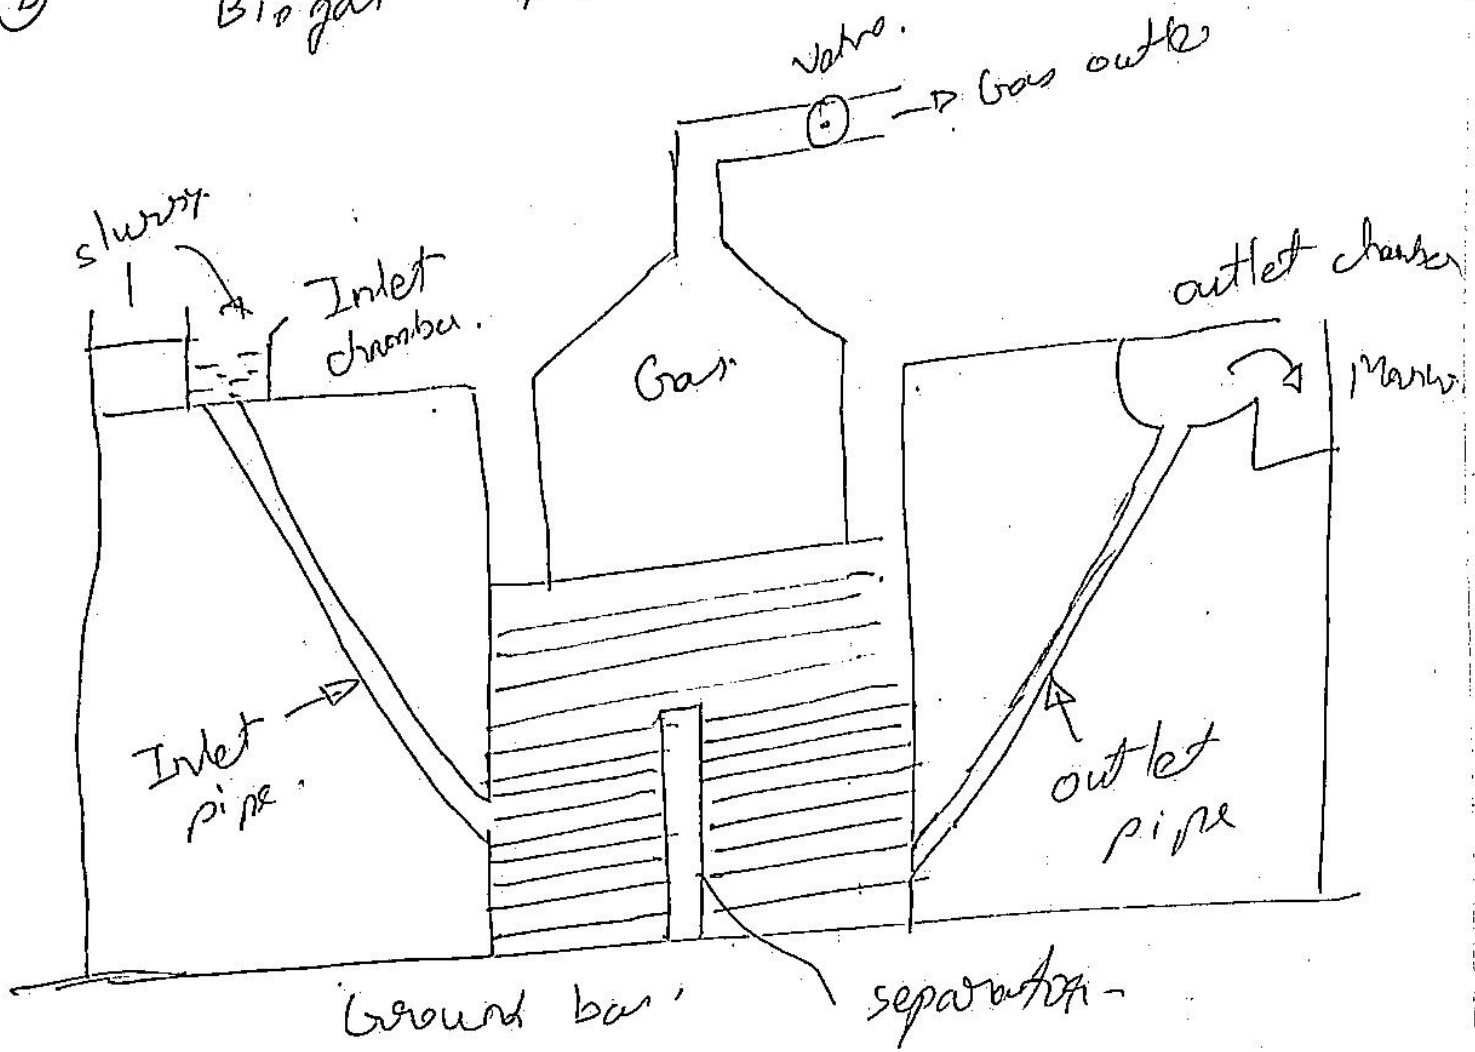 Biogas
Valve.
Gas outle
slurry
Inlet
chamber.
outlet chamber
Gas.
Inlet
pipe.
outlet
pipe
Ground bas
separator